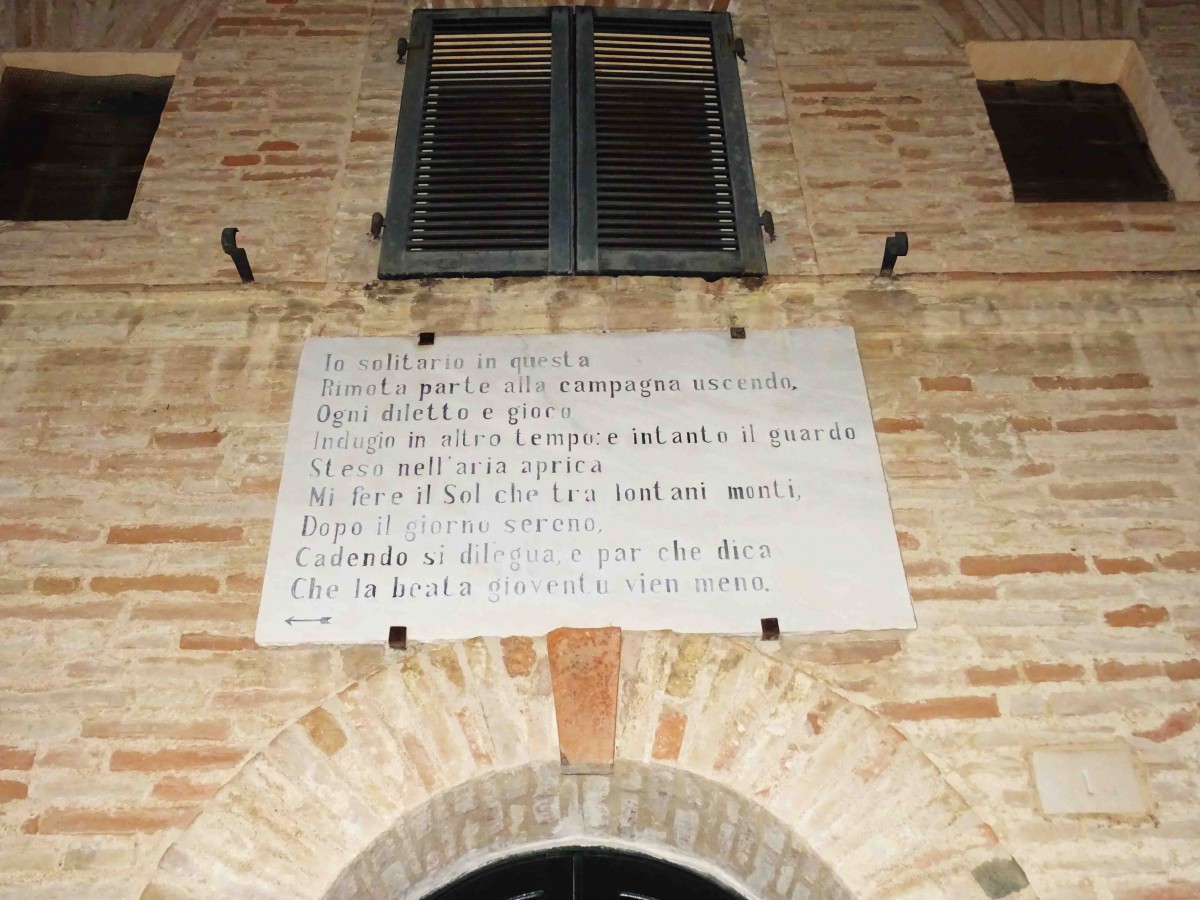 Io solitario in questa
Rimota parte alla campagna uscendo,
Ogni diletto e gioco
Indugio in altro tempo: e intanto il guardo
Steso nell'aria aprica
Mi fere il Sol che tra lontani monti,
Dopo il giorno sereno,
Cadendo si dilegua, e par che dica
Che la beata gioventu vien meno.
1